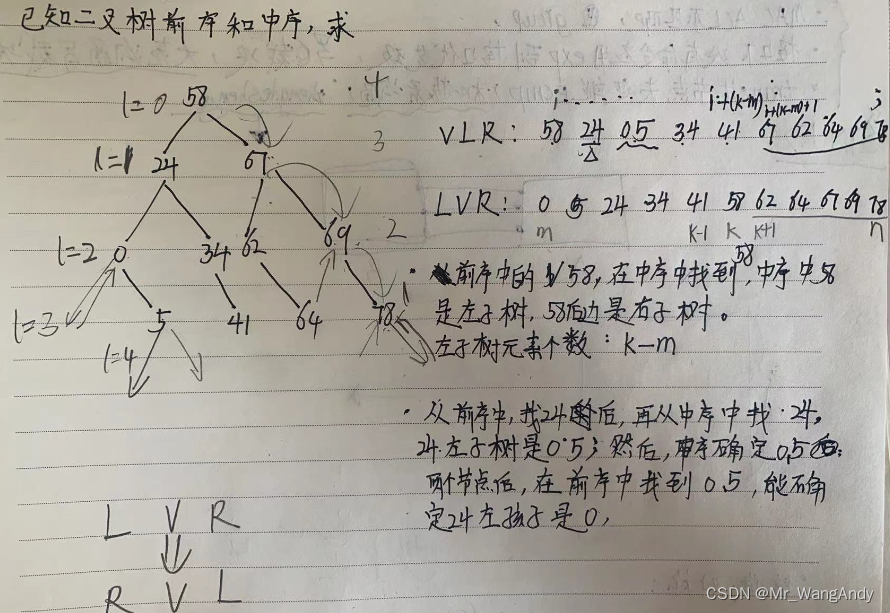 已知二叉树前序和中序，求
l=0 58
4
l=1 24 67
3
l=2 0 34 62 69 2
l=3 5 41 64 78 1
l=4
i......
i+(k-m)
i+(k-m)+1
j
VLR: 58 24 0 5 34 41 67 62 64 69 78
LVR: 0 5 24 34 41 58 62 64 67 69 78
m k-1 k k+1 n
前序中的 58，在中序中找到58，中序中58
是左子树，58后边是右子树。
左子树元素个数：k-m
从前序中，找24后，再从中序中找24。
24左子树是0 5；然后，中序确定0,5
两个节点后，在前序中找到0.5，能确
定24左孩子是0，
L V R
R V L
CSDN @Mr_WangAndy